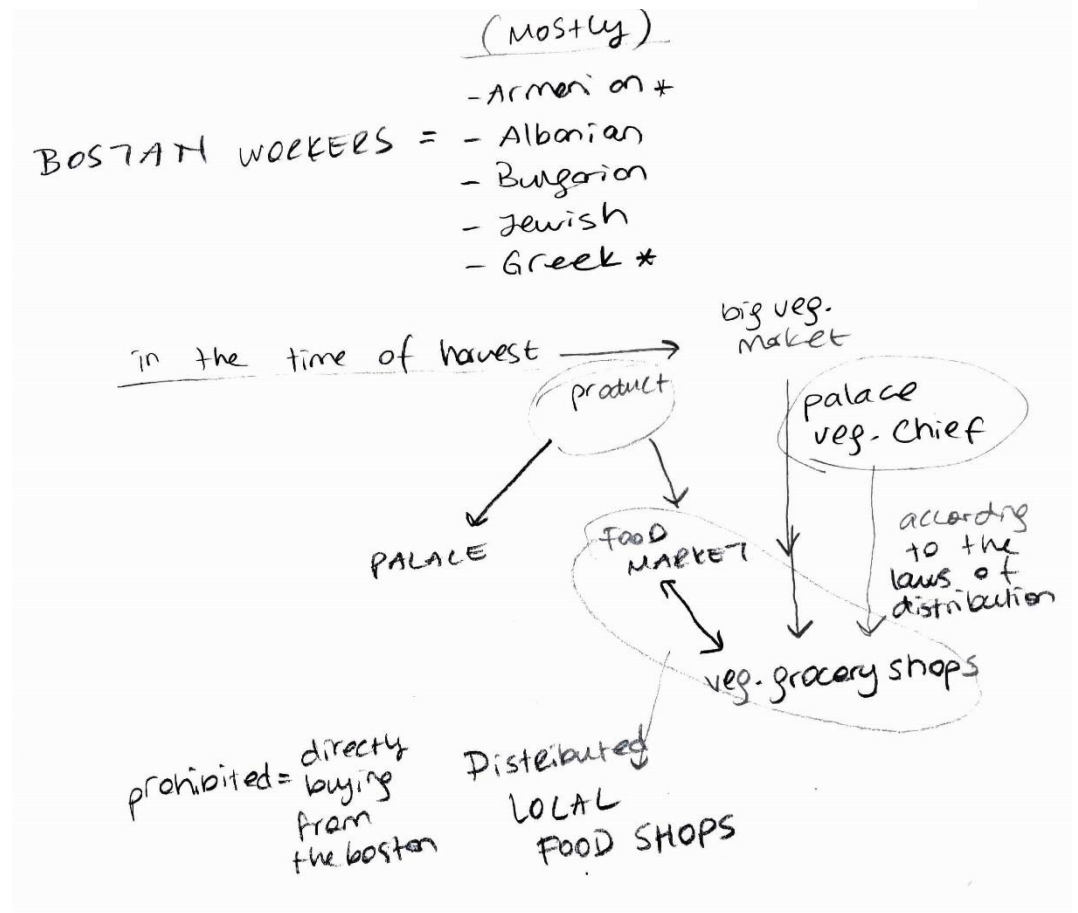 (Mostly)
- Armenian *
BOSTAN WORKERS = - Albanian
- Bulgarian
- Jewish
- Greek *
in the time of harvest → big veg.
market
product
palace
veg. chief
PALACE
FOOD
MARKET
according
to the
laws of
distribution
veg. grocery shops
prohibited = directly
buying
from
the bostan
Distributed
LOCAL
FOOD SHOPS